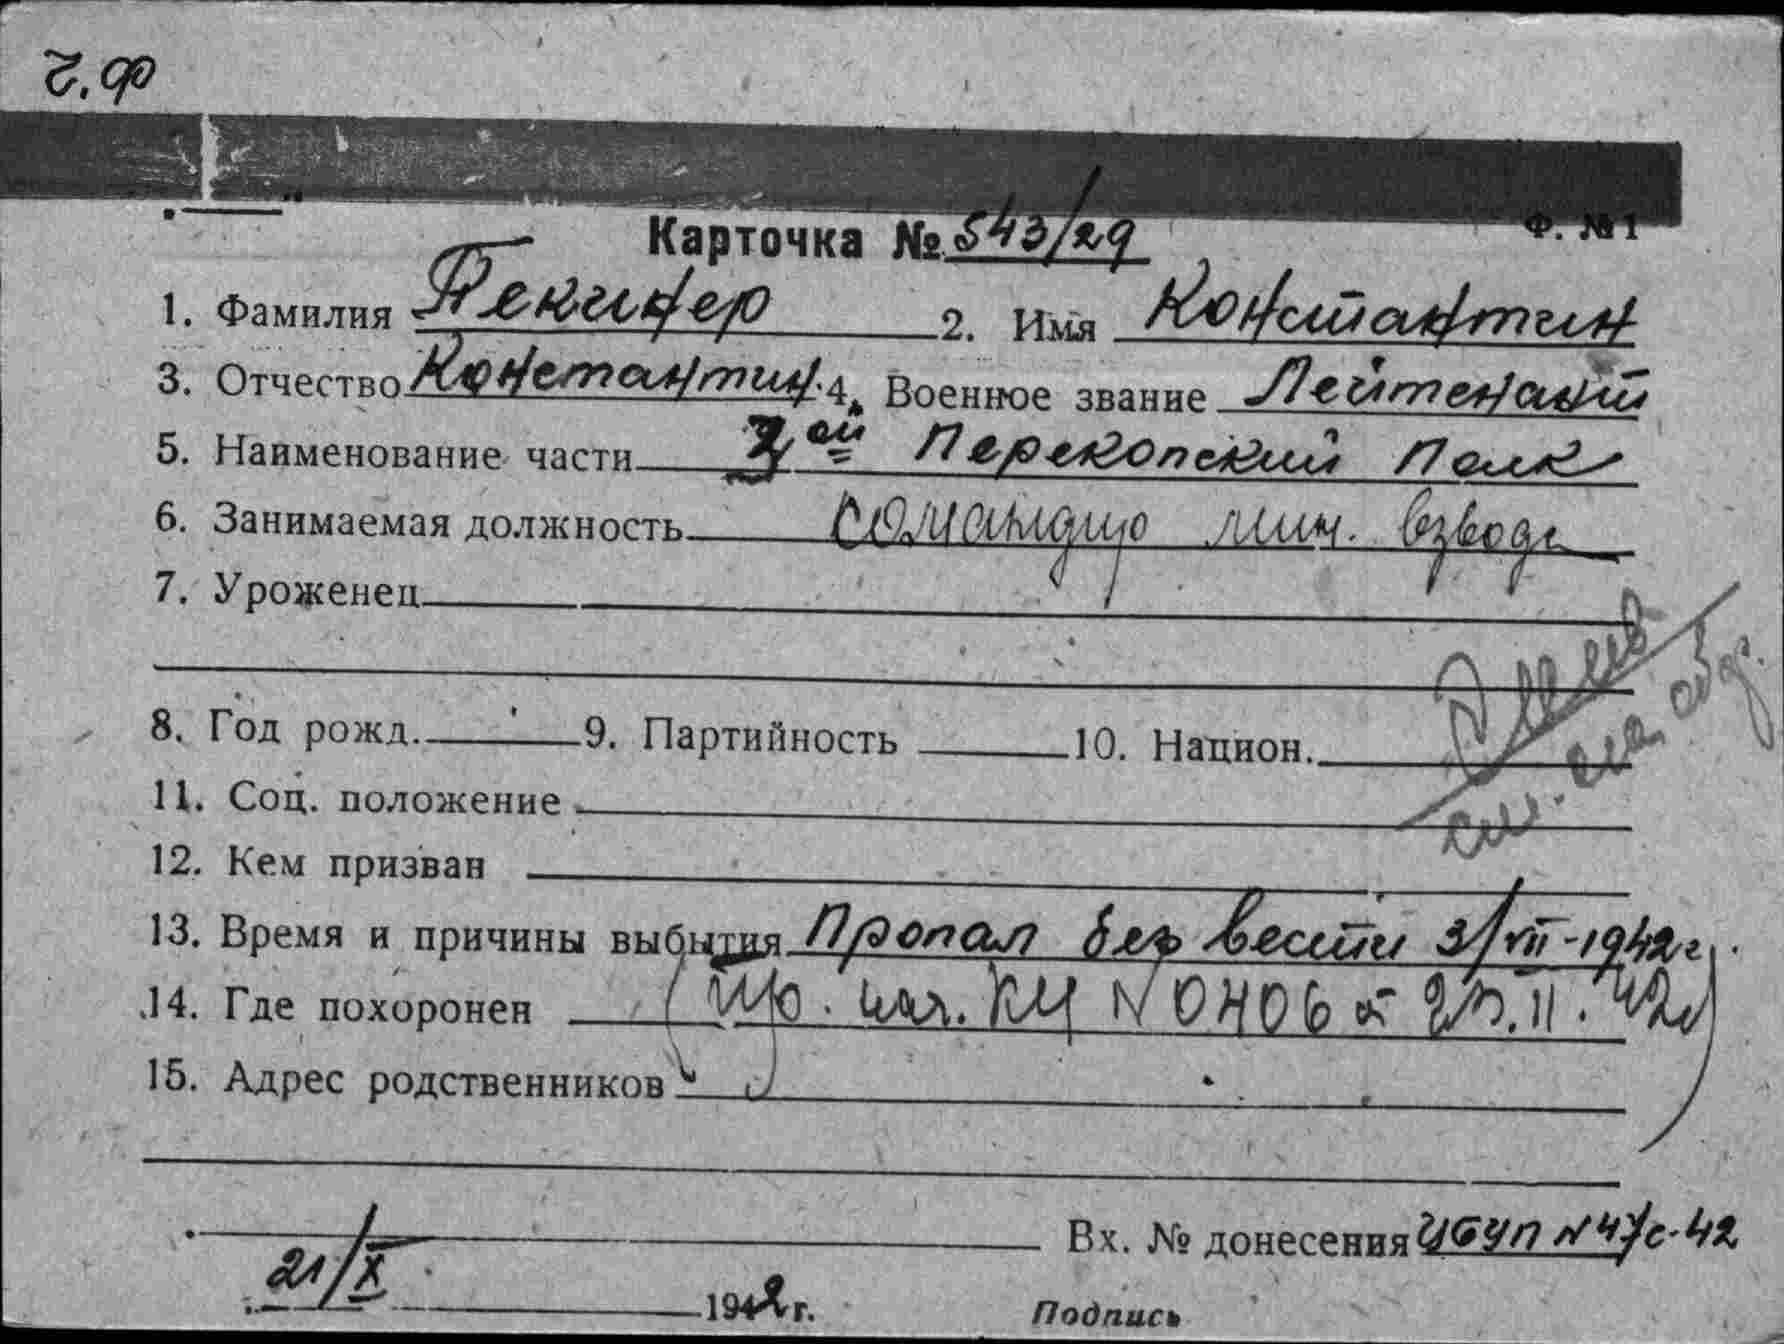 Ч.Ф
Карточка № 543/29 Ф. №1
1. Фамилия Текицер 2. Имя Константин
3. Отчество Константин. 4. Военное звание Лейтенант
5. Наименование части 2ой Перекопский Полк
6. Занимаемая должность командир мин. взвода
7. Уроженец
8. Год рожд. 9. Партийность 10. Национ.
11. Соц. положение
12. Кем призван
13. Время и причины выбытия Пропал без вести 3/VII-1942г.
14. Где похоронен (пр. нач. КЦ N 0406
15. Адрес родственников
Вх. № донесения N 47с-42
21/X 1942 г. Подпись